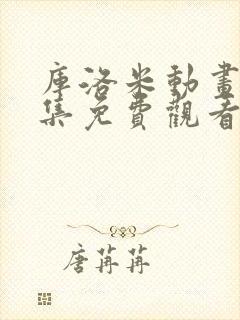 库洛米動畫
集免費觀看
唐苒苒